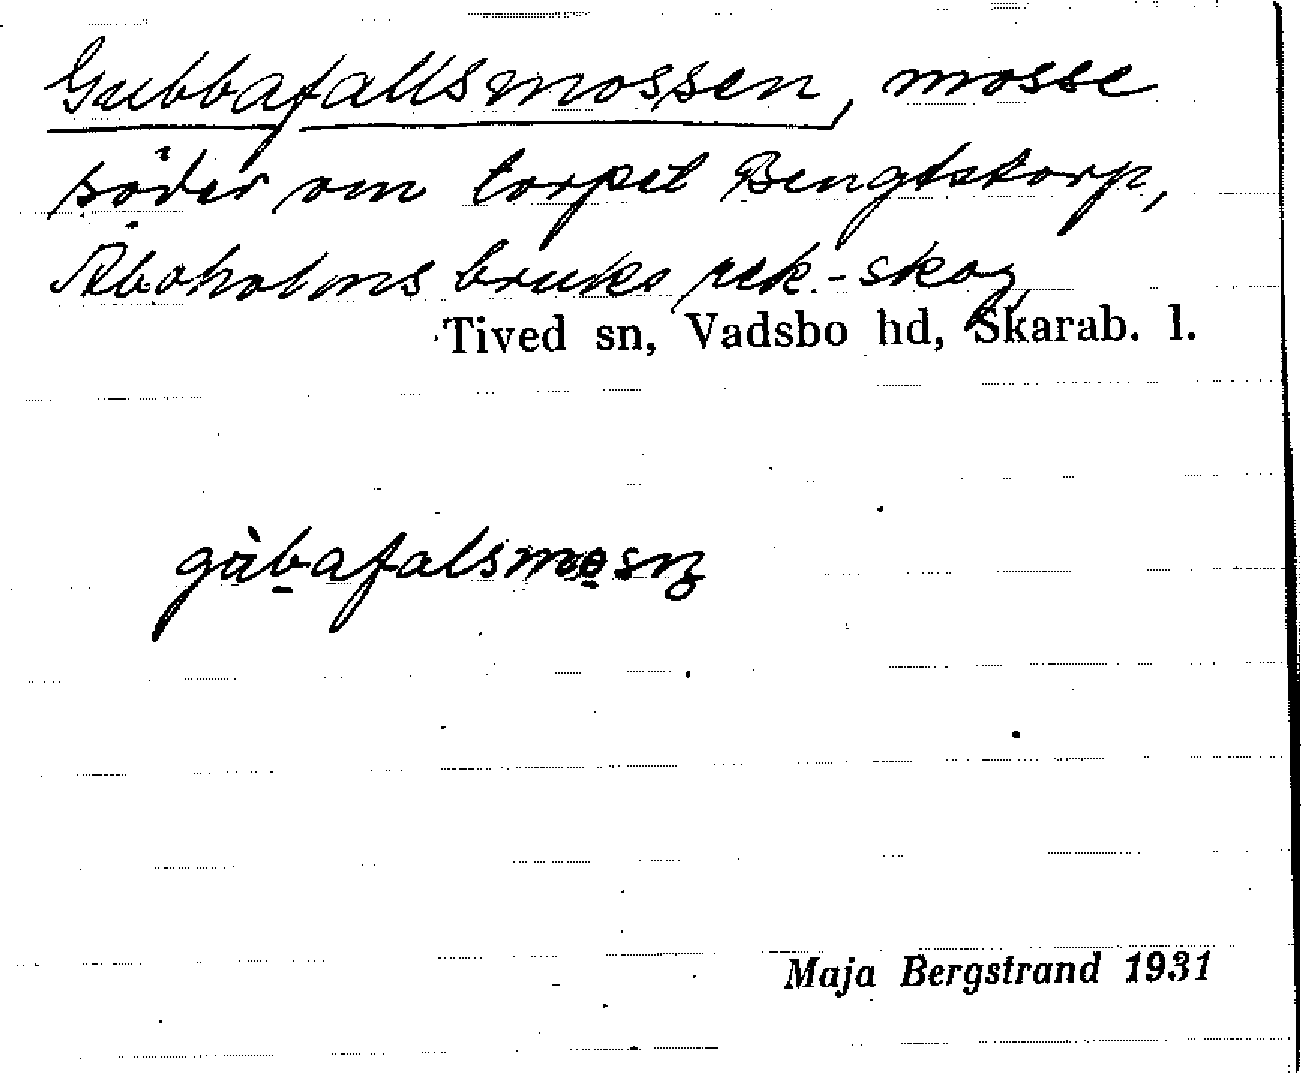 Gubbafallsmossen, mosse
söder om torpet Bengtstorp,
Aboholms bruks rek.-skog
Tived sn, Vadsbo hd, Skarab. l.
gùbafalsmosn̥
Maja Bergstrand 1931